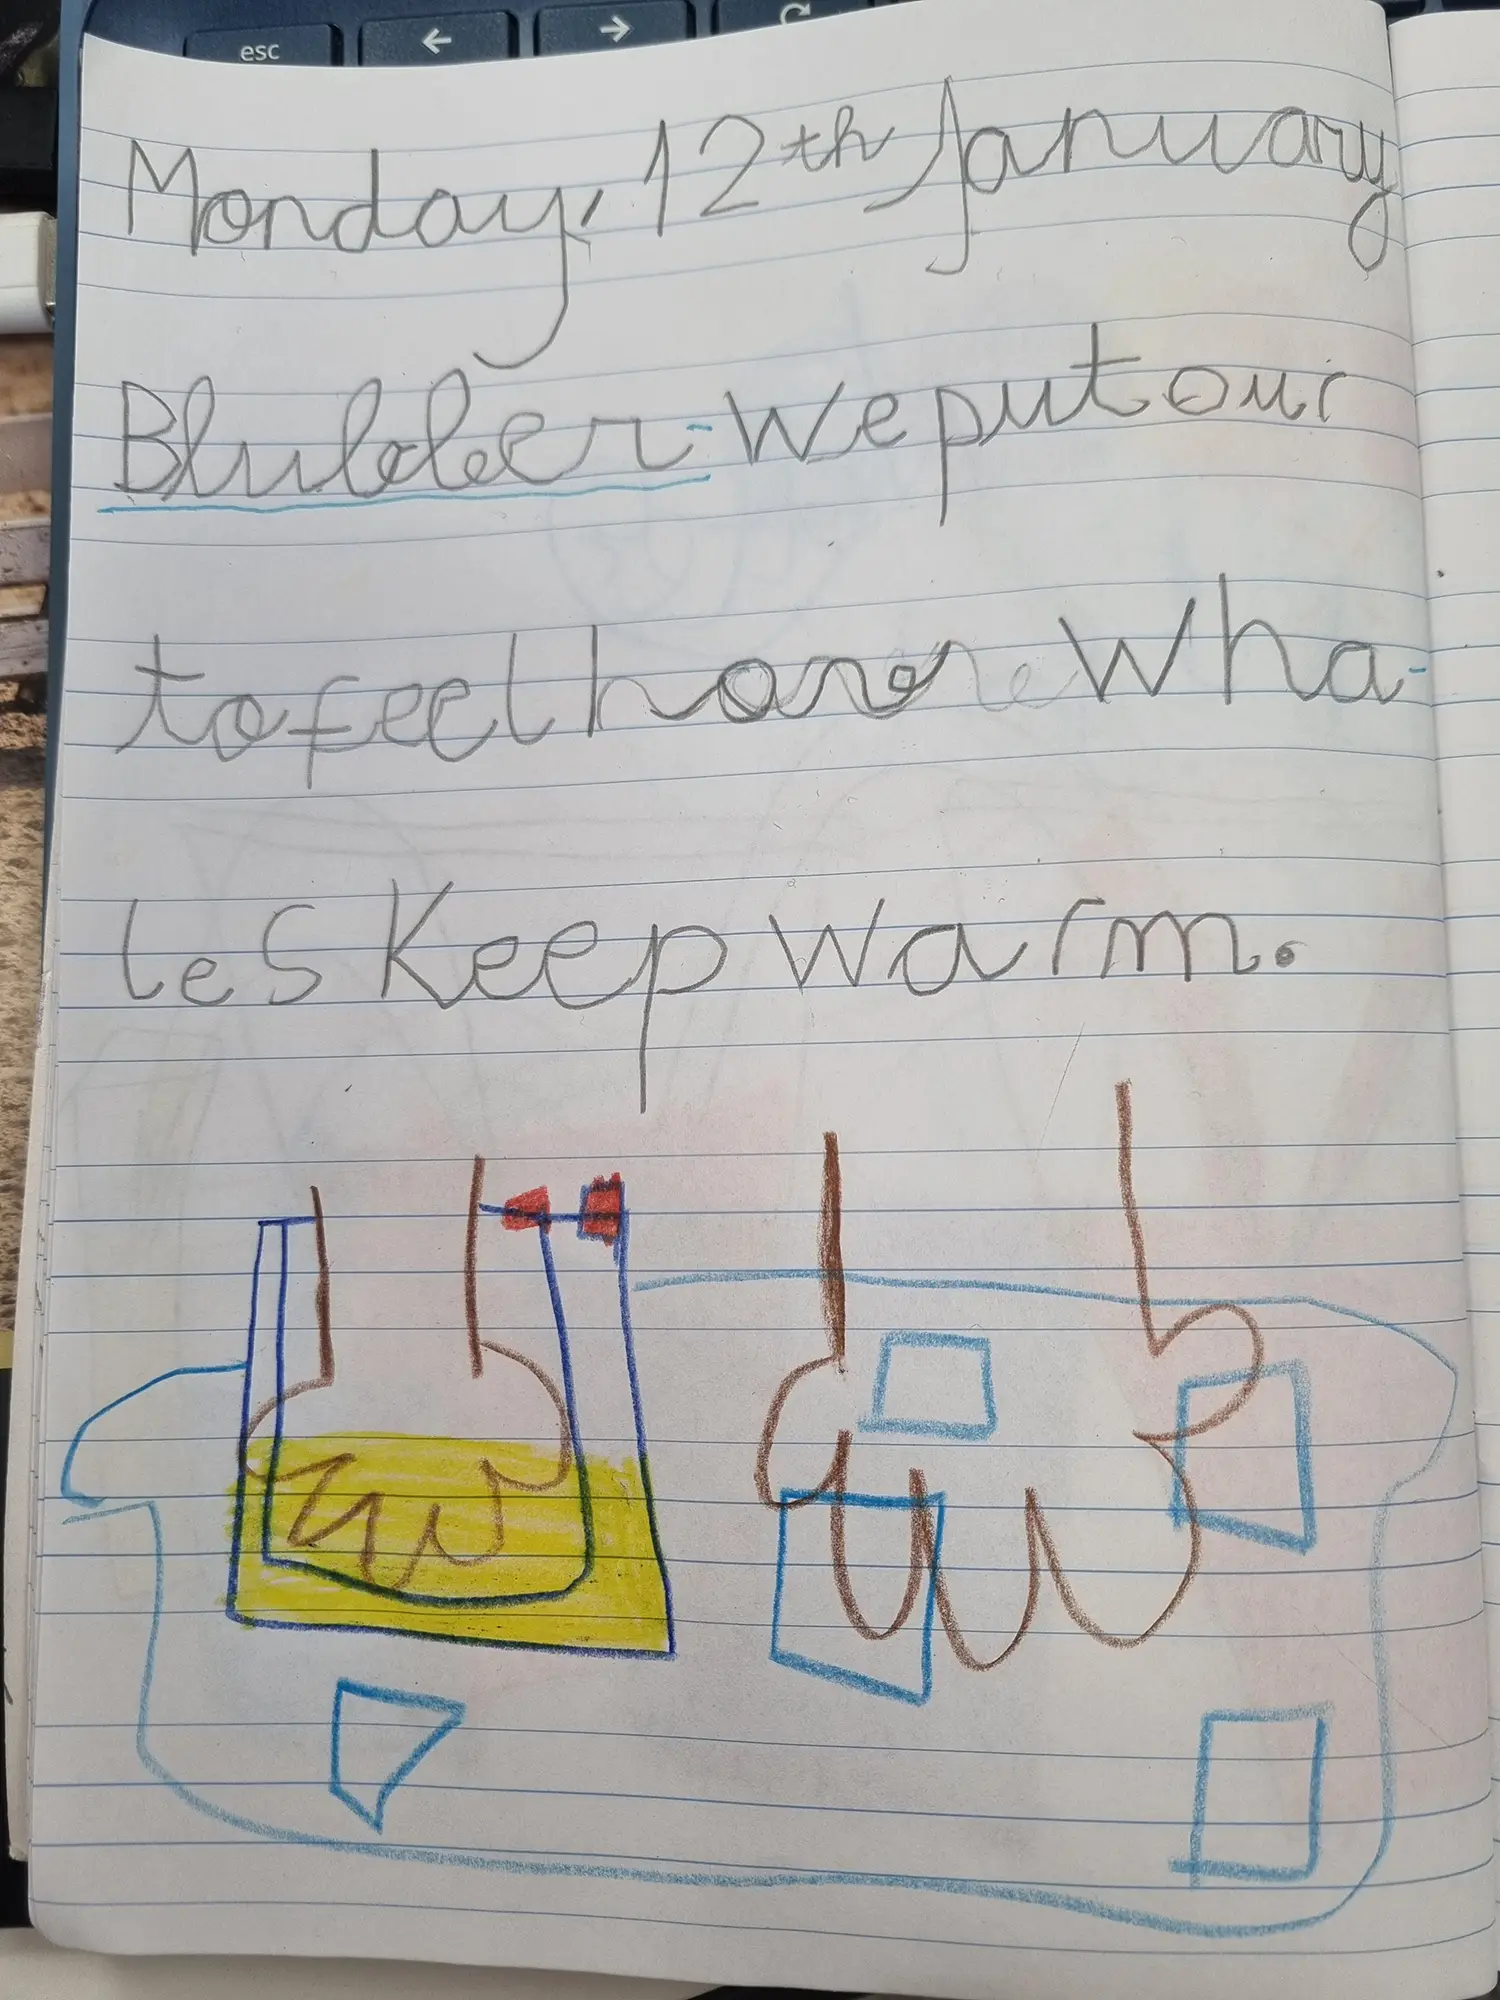 esc
Monday, 12th January
Blubber - We put our
to feel how wha-
les keep warm.